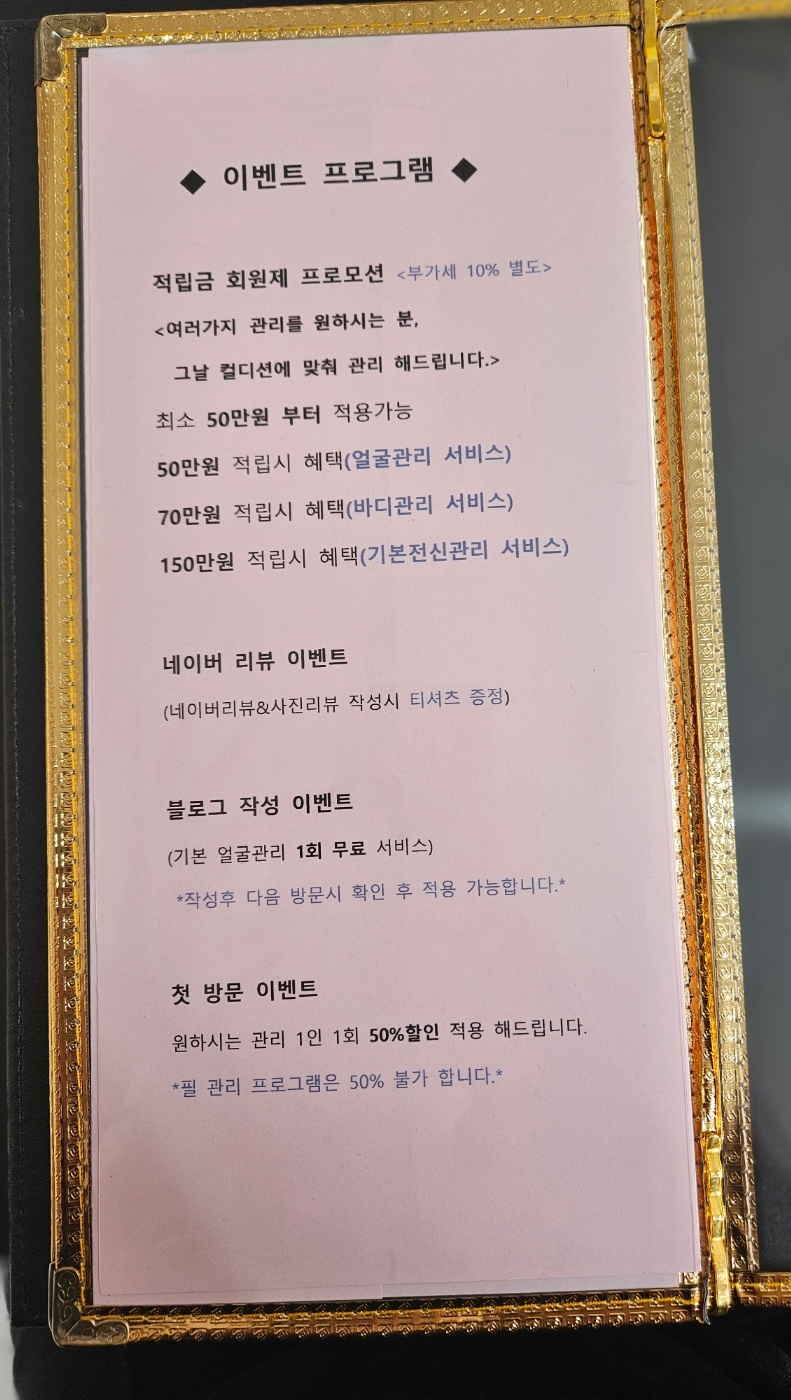 ◆ 이벤트 프로그램 ◆
적립금 회원제 프로모션 <부가세 10% 별도>
<여러가지 관리를 원하시는 분,
그날 컬디션에 맞춰 관리 해드립니다.>
최소 50만원 부터 적용가능
50만원 적립시 혜택(얼굴관리 서비스)
70만원 적립시 혜택(바디관리 서비스)
150만원 적립시 혜택(기본전신관리 서비스)
네이버 리뷰 이벤트
(네이버리뷰&사진리뷰 작성시 티셔츠 증정)
블로그 작성 이벤트
(기본 얼굴관리 1회 무료 서비스)
*작성후 다음 방문시 확인 후 적용 가능합니다.*
첫 방문 이벤트
원하시는 관리 1인 1회 50%할인 적용 해드립니다.
*필 관리 프로그램은 50% 불가 합니다.*